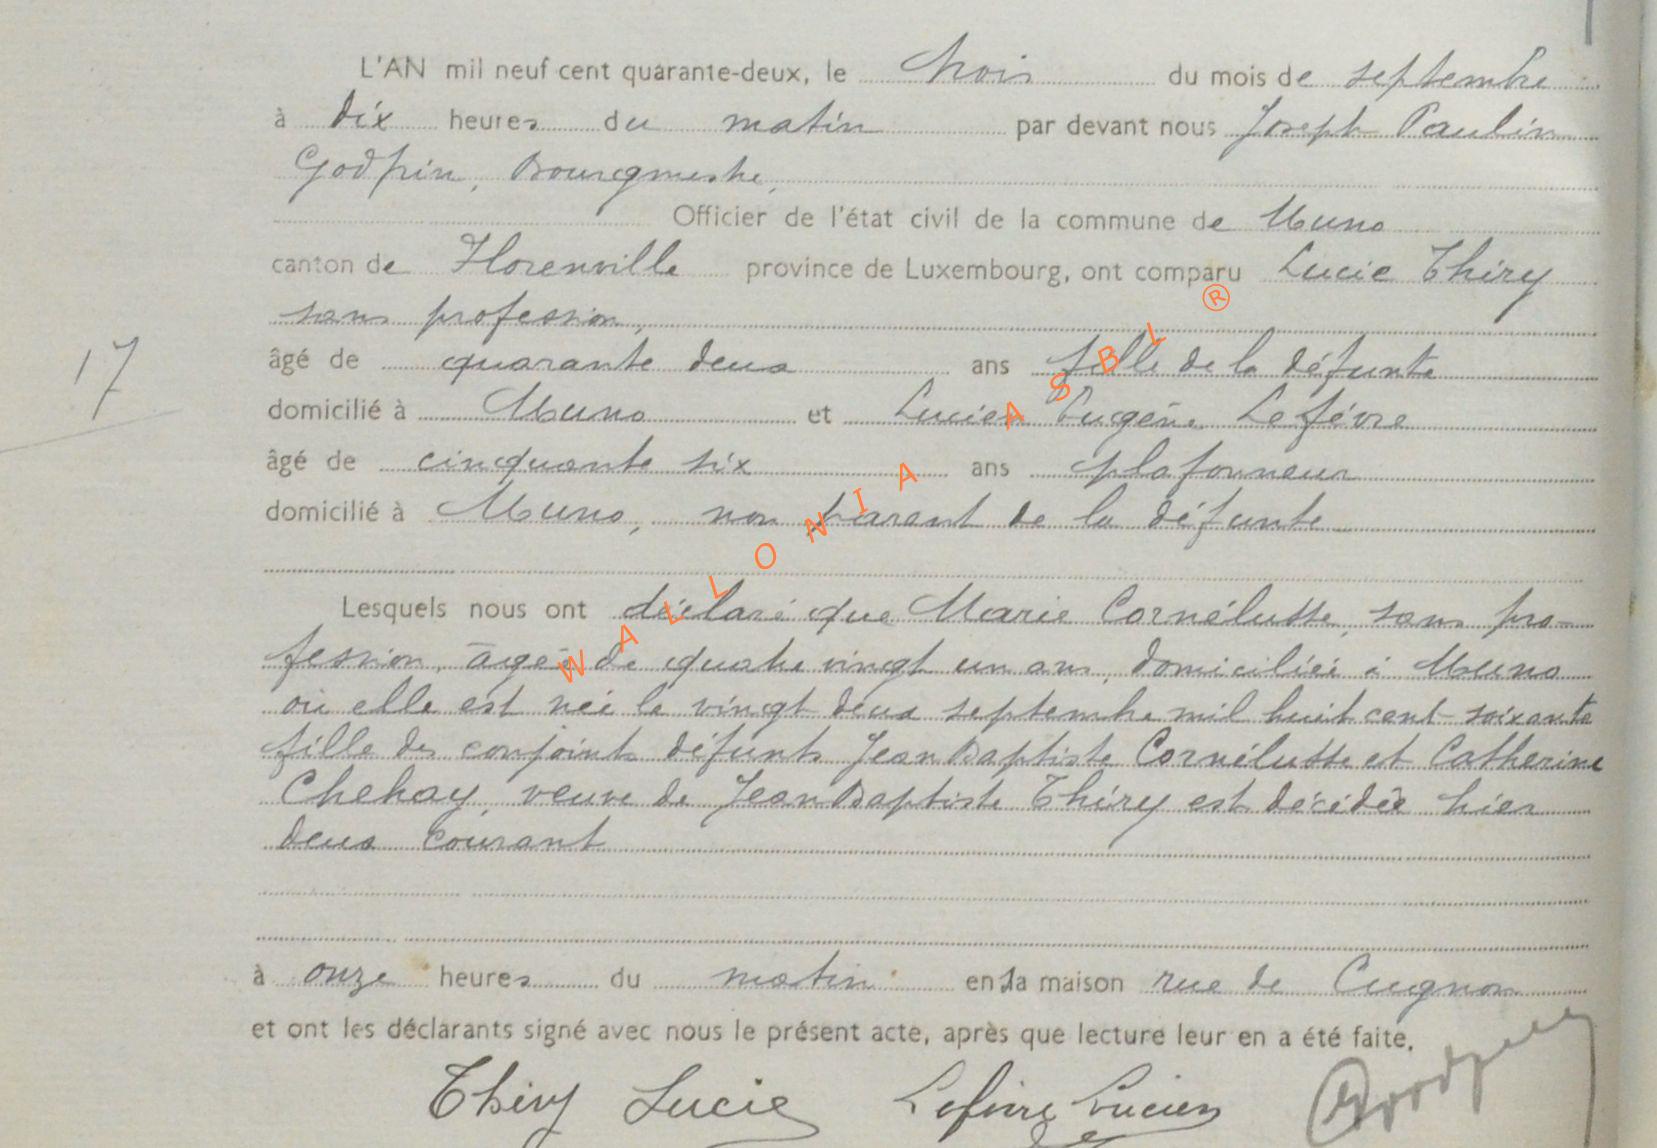 L'AN mil neuf cent quarante-deux, le trois du mois de septembre
à dix heures du matin par devant nous Joseph Paulin
Godfrin, Bourgmestre,
Officier de l'état civil de la commune de Muno
canton de Florenville province de Luxembourg, ont comparu Lucie Thiry
sans profession,
âgé de quarante deux ans fille de la défunte
17
domicilié à Muno et Lucien Eugène Lefèvre
âgé de cinquante six ans plafonneur
domicilié à Muno, non parent de la défunte
Lesquels nous ont déclaré que Marie Cornélusse, sans pro-
fession, âgée de quatre vingt un ans, domiciliée à Muno
où elle est née le vingt deux septembre mil huit cent soixante
fille des conjoints défunts Jean Baptiste Cornélusse et Catherine
Chehay, veuve de Jean Baptiste Thiry est décédée hier
deux courant
à onze heures du matin en la maison rue de Cugnon
et ont les déclarants signé avec nous le présent acte, après que lecture leur en a été faite.
Thiry Lucie Lefèvre Lucien
WALLONIA ASBL ®